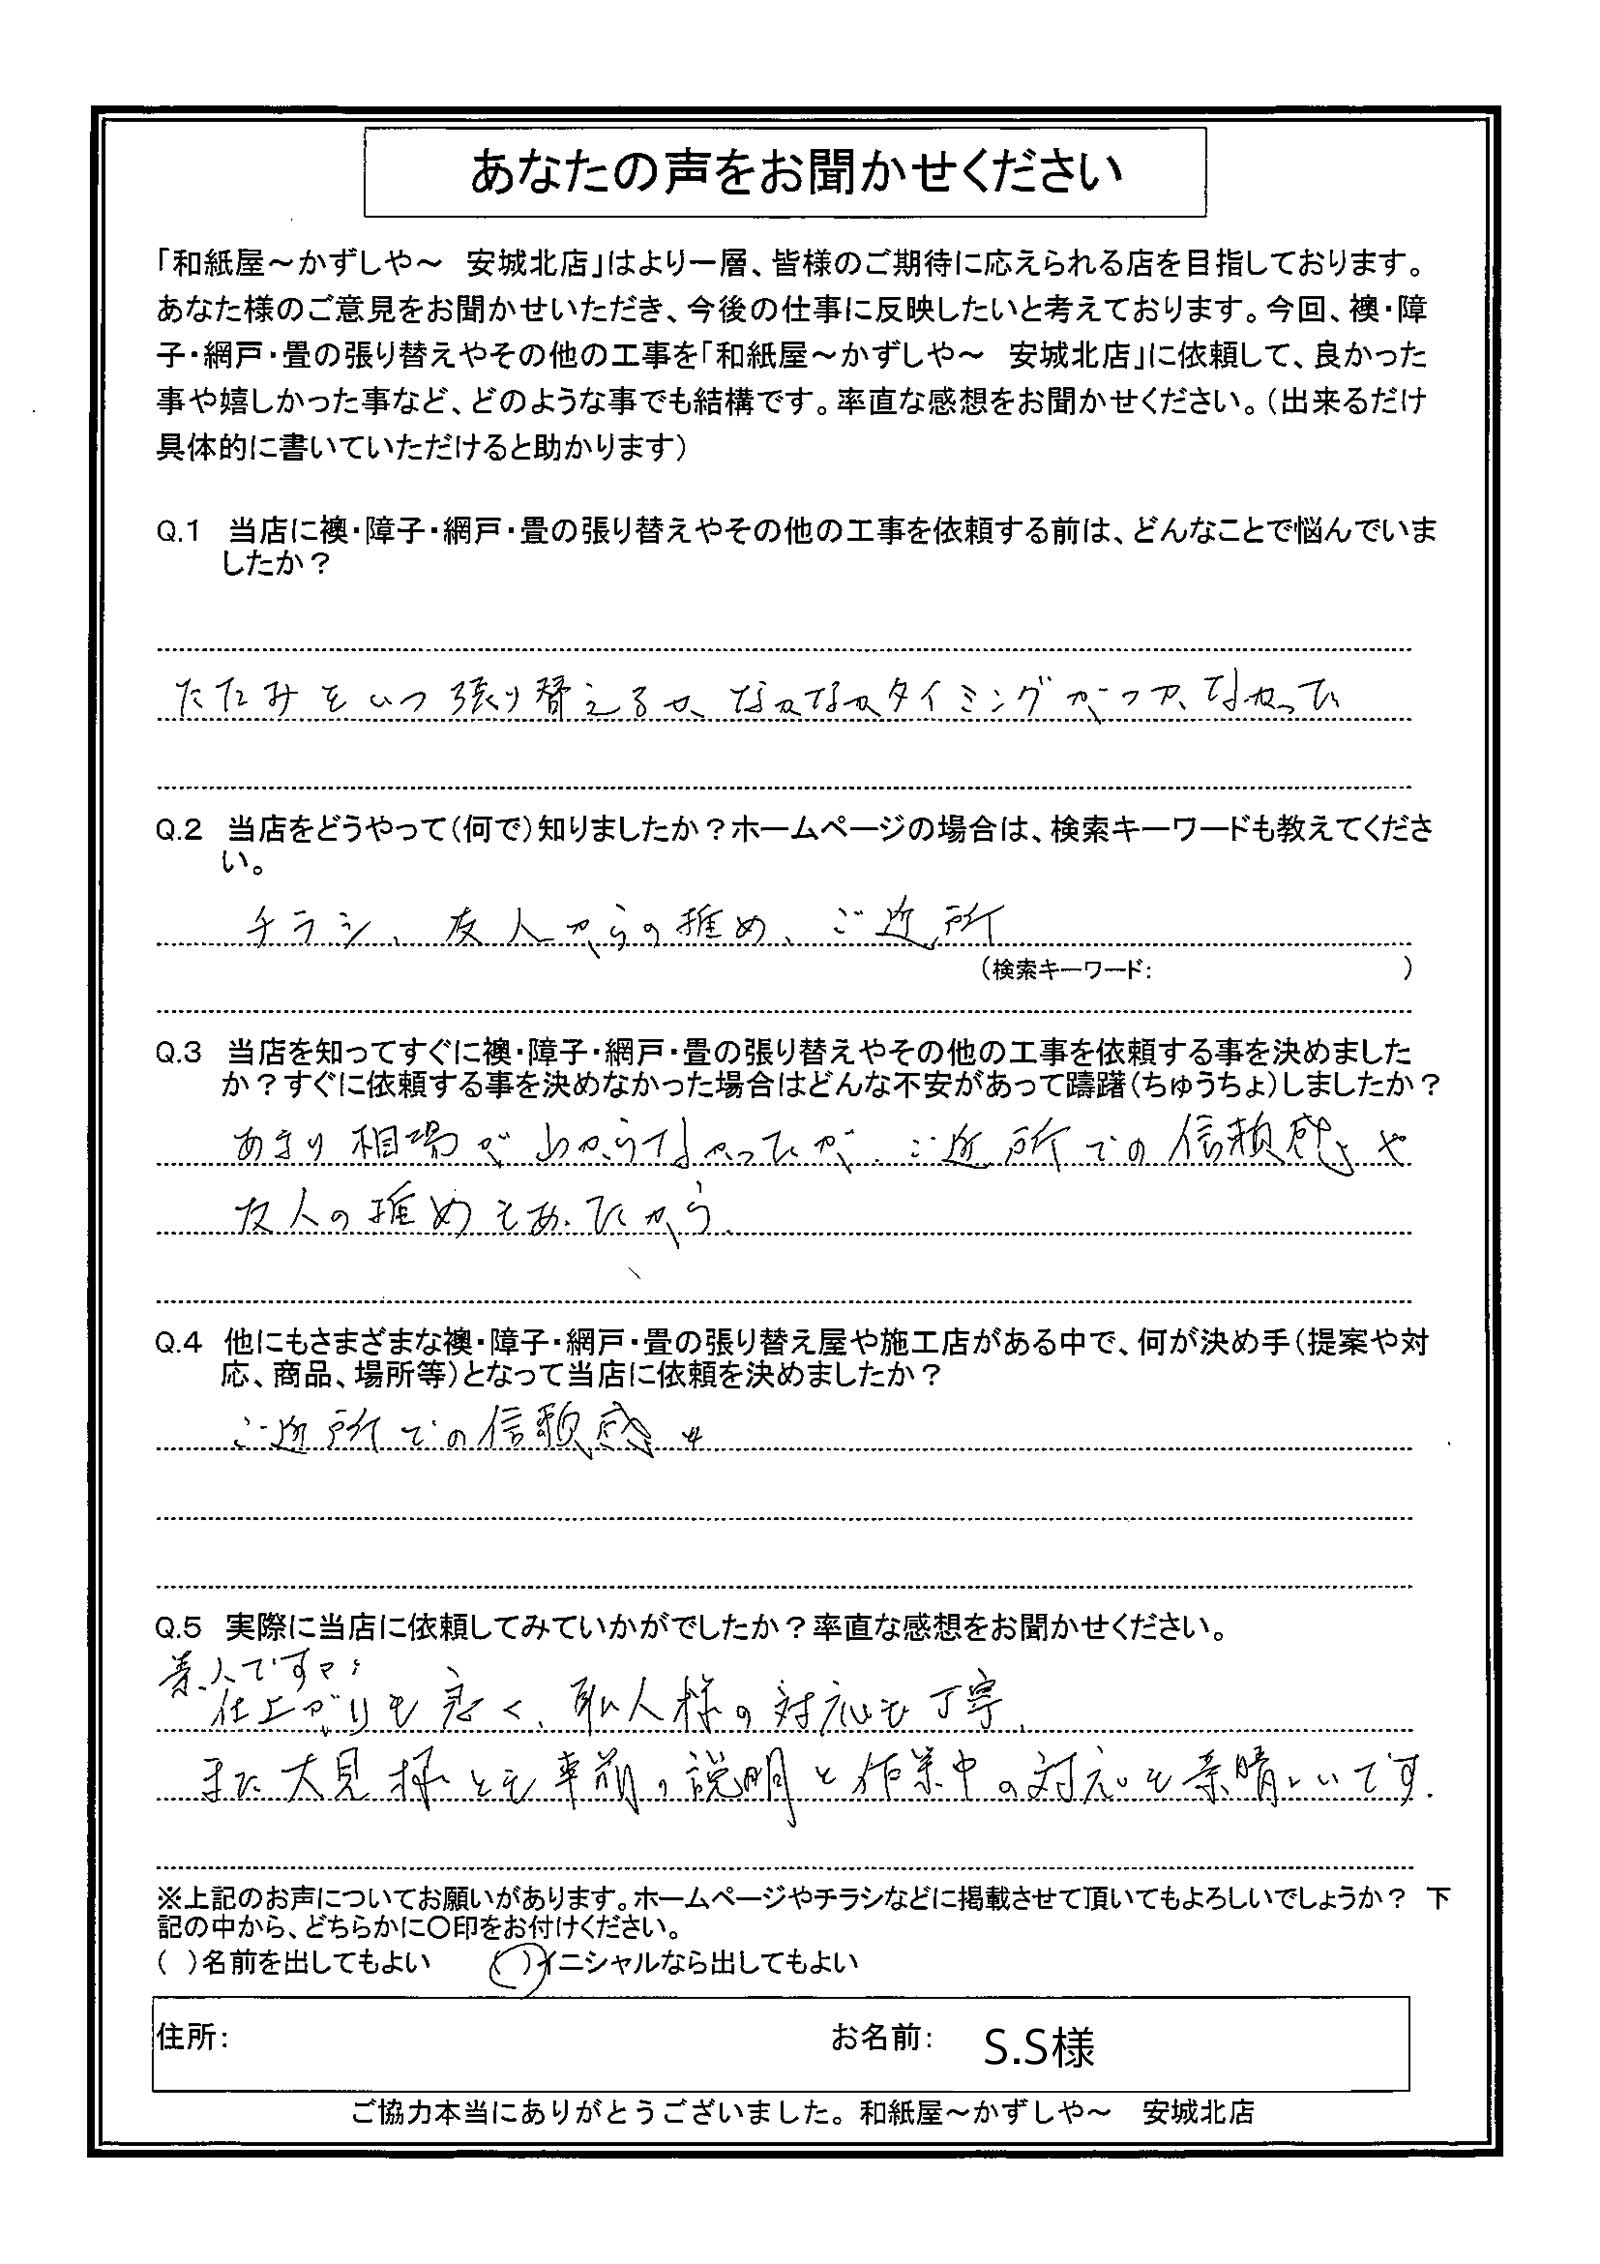 あなたの声をお聞かせください
「和紙屋～かずしや～　安城北店」はより一層、皆様のご期待に応えられる店を目指しております。
あなた様のご意見をお聞かせいただき、今後の仕事に反映したいと考えております。今回、襖・障
子・網戸・畳の張り替えやその他の工事を「和紙屋～かずしや～　安城北店」に依頼して、良かった
事や嬉しかった事など、どのような事でも結構です。率直な感想をお聞かせください。（出来るだけ
具体的に書いていただけると助かります）
Q.1　当店に襖・障子・網戸・畳の張り替えやその他の工事を依頼する前は、どんなことで悩んでいま
したか？
たたみをいつ張り替えるか、なかなかタイミングがつかなかった
Q.2　当店をどうやって（何で）知りましたか？ホームページの場合は、検索キーワードも教えてくださ
い。
チラシ、友人からの推め、ご近所
（検索キーワード：　　　　）
Q.3　当店を知ってすぐに襖・障子・網戸・畳の張り替えやその他の工事を依頼する事を決めました
か？すぐに依頼する事を決めなかった場合はどんな不安があって躊躇（ちゅうちょ）しましたか？
あまり相場がわからなかったが、ご近所での信頼感や
友人の推めもあったから。
Q.4　他にもさまざまな襖・障子・網戸・畳の張り替え屋や施工店がある中で、何が決め手（提案や対
応、商品、場所等）となって当店に依頼を決めましたか？
ご近所での信頼感
Q.5　実際に当店に依頼してみていかがでしたか？率直な感想をお聞かせください。
素人ですが
仕上がりも良く、職人様の対応も丁寧、
また大見様とも事前の説明と作業中の対応も素晴しいです。
※上記のお声についてお願いがあります。ホームページやチラシなどに掲載させて頂いてもよろしいでしょうか？　下
記の中から、どちらかに〇印をお付けください。
（　）名前を出してもよい　　（　）イニシャルなら出してもよい
住所：　　お名前：　S.S様
ご協力本当にありがとうございました。和紙屋～かずしや～　安城北店